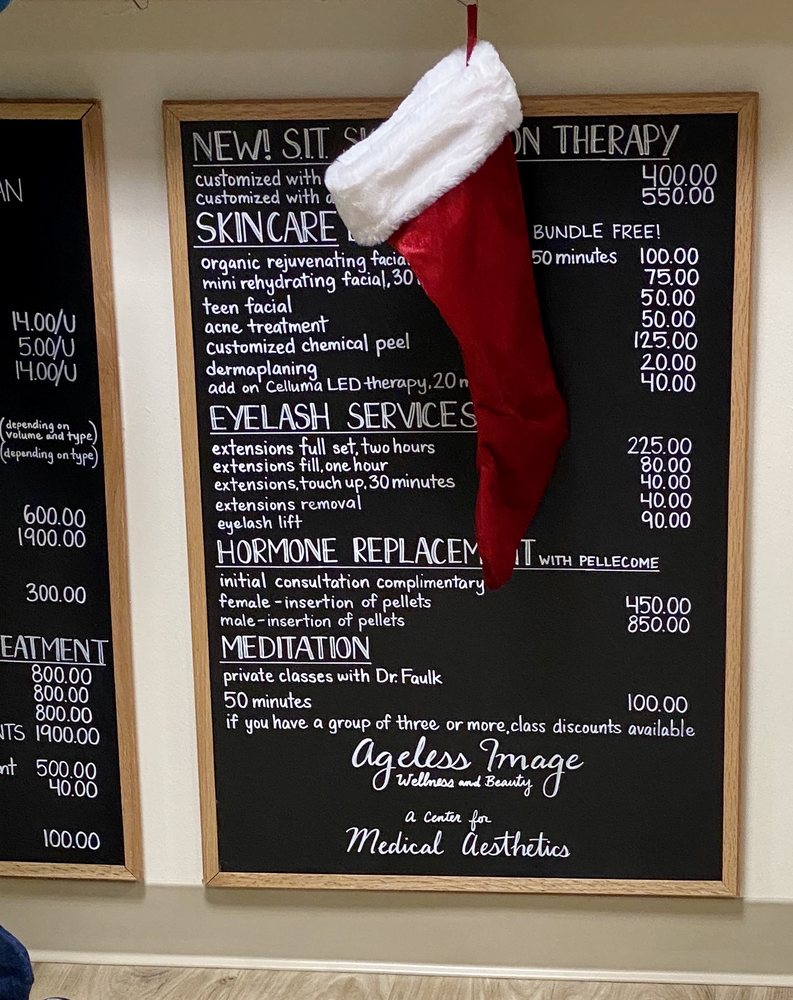 AN
14.00/U
5.00/U
14.00/U
(depending on
volume and type)
(depending on type)
600.00
1900.00
300.00
EATMENT
800.00
800.00
800.00
NTS 1900.00
nt 500.00
40.00
100.00
NEW! S.I.T. ON THERAPY
customized with 400.00
customized with 550.00
SKINCARE BUNDLE FREE!
organic rejuvenating facia 50 minutes 100.00
mini rehydrating facial, 30 75.00
teen facial 50.00
acne treatment 50.00
customized chemical peel 125.00
dermaplaning 20.00
add on Celluma LED therapy, 20 m 40.00
EYELASH SERVICES
extensions full set, two hours 225.00
extensions fill, one hour 80.00
extensions, touch up, 30 minutes 40.00
extensions removal 40.00
eyelash lift 90.00
HORMONE REPLACEM T WITH PELLECOME
initial consultation complimentary
female - insertion of pellets 450.00
male - insertion of pellets 850.00
MEDITATION
private classes with Dr. Faulk
50 minutes 100.00
if you have a group of three or more, class discounts available
Ageless Image
Wellness and Beauty
A Center for
Medical Aesthetics